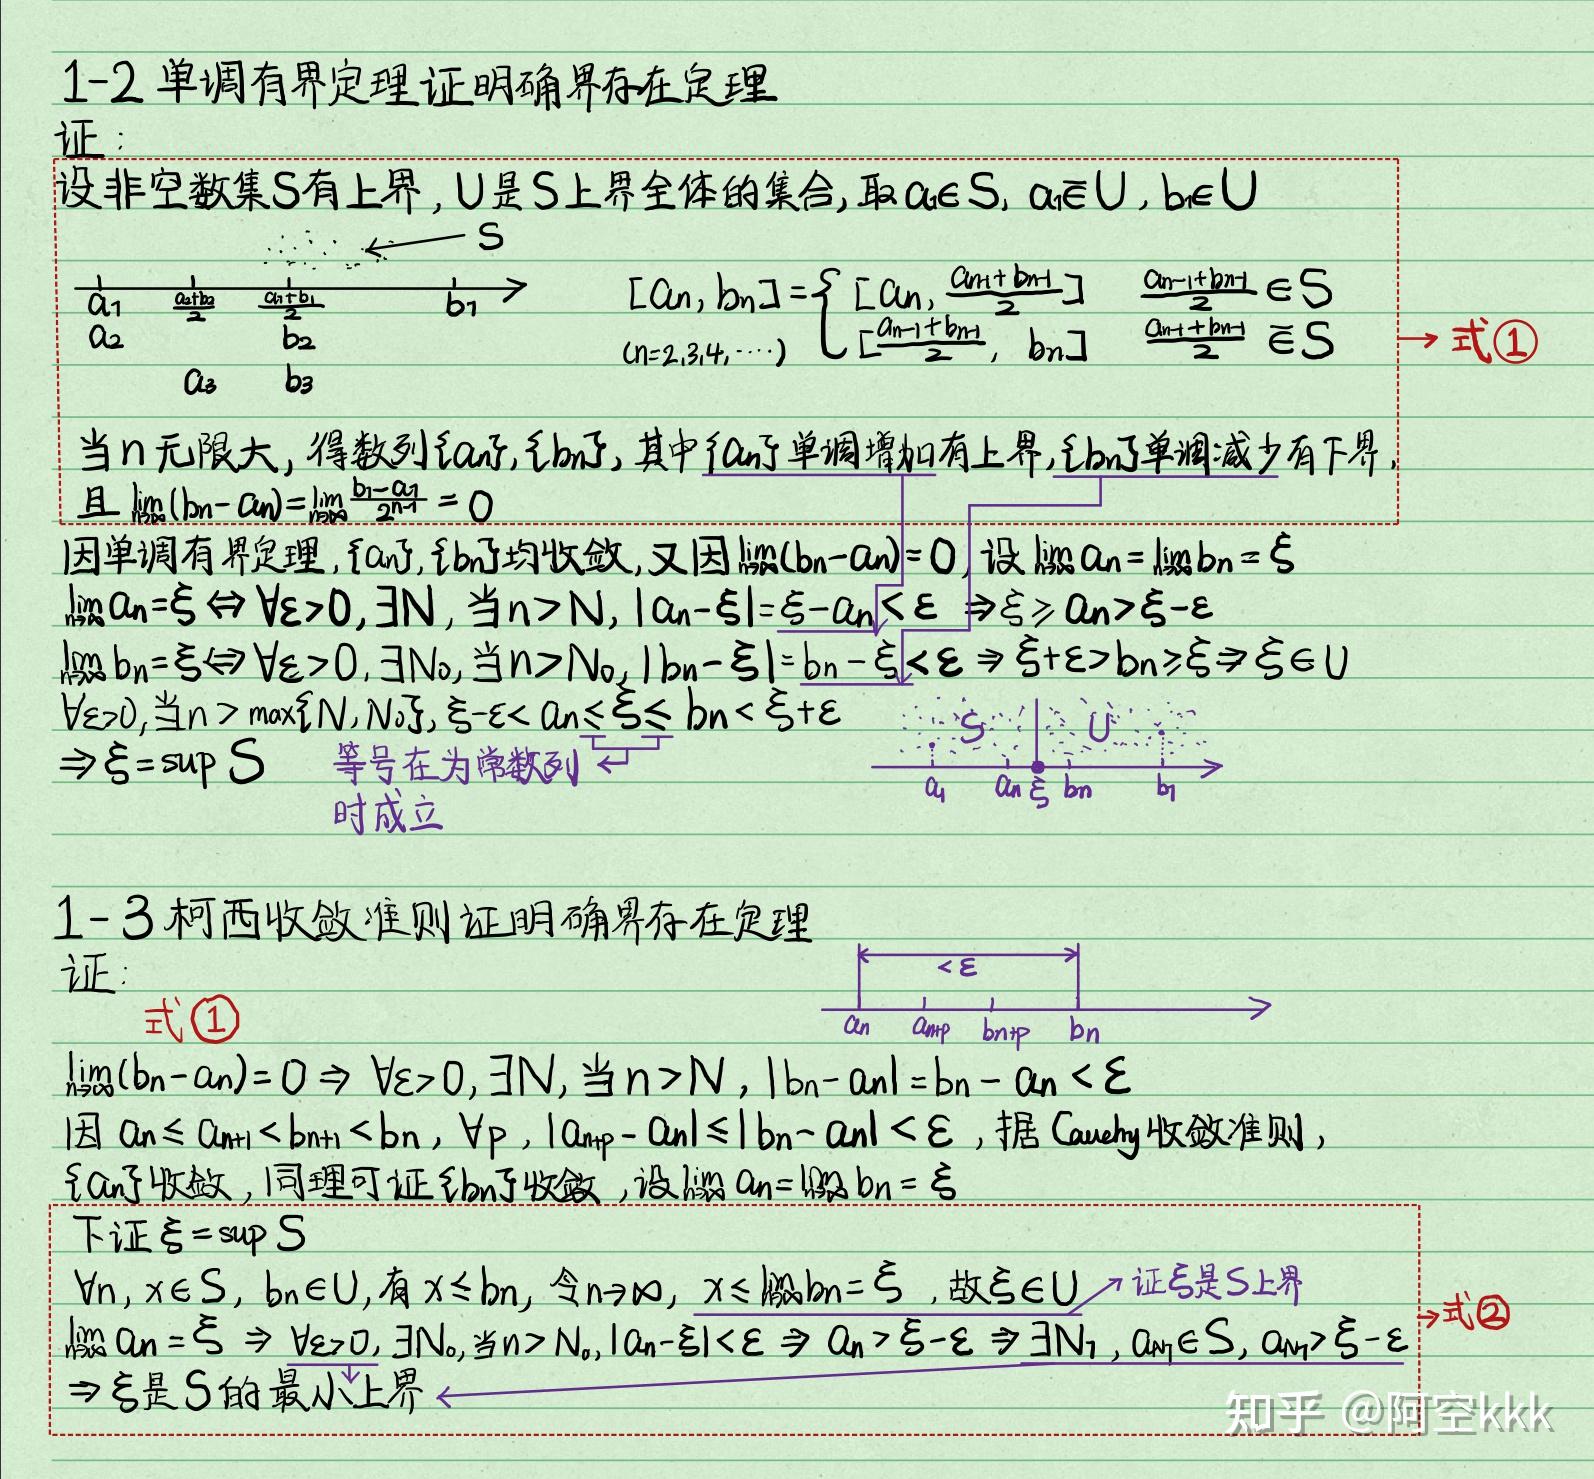 1-2 单调有界定理证明确界存在定理
证:
设非空数集S有上界, U是S上界全体的集合, 取a₁∈S, a₁∈̄U, b₁∈U
S
a₁ (a₂+b₂)/2 (a₁+b₁)/2 b₁
a₂ b₂
a₃ b₃
[an, bn] = { [an, (an-1+bn-1)/2] (an-1+bn-1)/2 ∈ S
[(an-1+bn-1)/2, bn] (an-1+bn-1)/2 ∈̄ S
(n=2,3,4,⋯)
→ 式①
当n无限大, 得数列{an}, {bn}, 其中{an}单调增加有上界, {bn}单调减少有下界,
且 lim n→∞ (bn-an) = lim n→∞ (b₁-a₁)/2ⁿ⁻¹ = 0
因单调有界定理, {an}, {bn}均收敛, 又因 lim n→∞ (bn-an)=0, 设 lim n→∞ an = lim n→∞ bn = ξ
lim n→∞ an=ξ ⇔ ∀ε>0, ∃N, 当n>N, |an-ξ|=ξ-an<ε ⇒ ξ≥an>ξ-ε
lim n→∞ bn=ξ ⇔ ∀ε>0, ∃N₀, 当n>N₀, |bn-ξ|=bn-ξ<ε ⇒ ξ+ε>bn≥ξ ⇒ ξ∈U
∀ε>0, 当n>max{N, N₀}, ξ-ε<an≤ξ≤bn<ξ+ε
⇒ ξ=sup S
等号在为常数列
时成立
S U
a₁ an ξ bn b₁
1-3 柯西收敛准则证明确界存在定理
证:
式①
<ε
an an+p bn+p bn
lim n→∞ (bn-an)=0 ⇒ ∀ε>0, ∃N, 当n>N, |bn-an|=bn-an<ε
因 an≤an+1<bn+1<bn, ∀p, |an+p-an|≤|bn-an|<ε, 据Cauchy收敛准则,
{an}收敛, 同理可证{bn}收敛, 设 lim n→∞ an = lim n→∞ bn = ξ
下证 ξ=sup S
∀n, x∈S, bn∈U, 有 x≤bn, 令n→∞, x≤ lim n→∞ bn=ξ, 故ξ∈U
证ξ是S上界
lim n→∞ an=ξ ⇒ ∀ε>0, ∃N₀, 当n>N₀, |an-ξ|<ε ⇒ an>ξ-ε ⇒ ∃N₁, aN₁∈S, aN₁>ξ-ε
→ 式②
⇒ ξ是S的最小上界
知乎 @阿空kkk